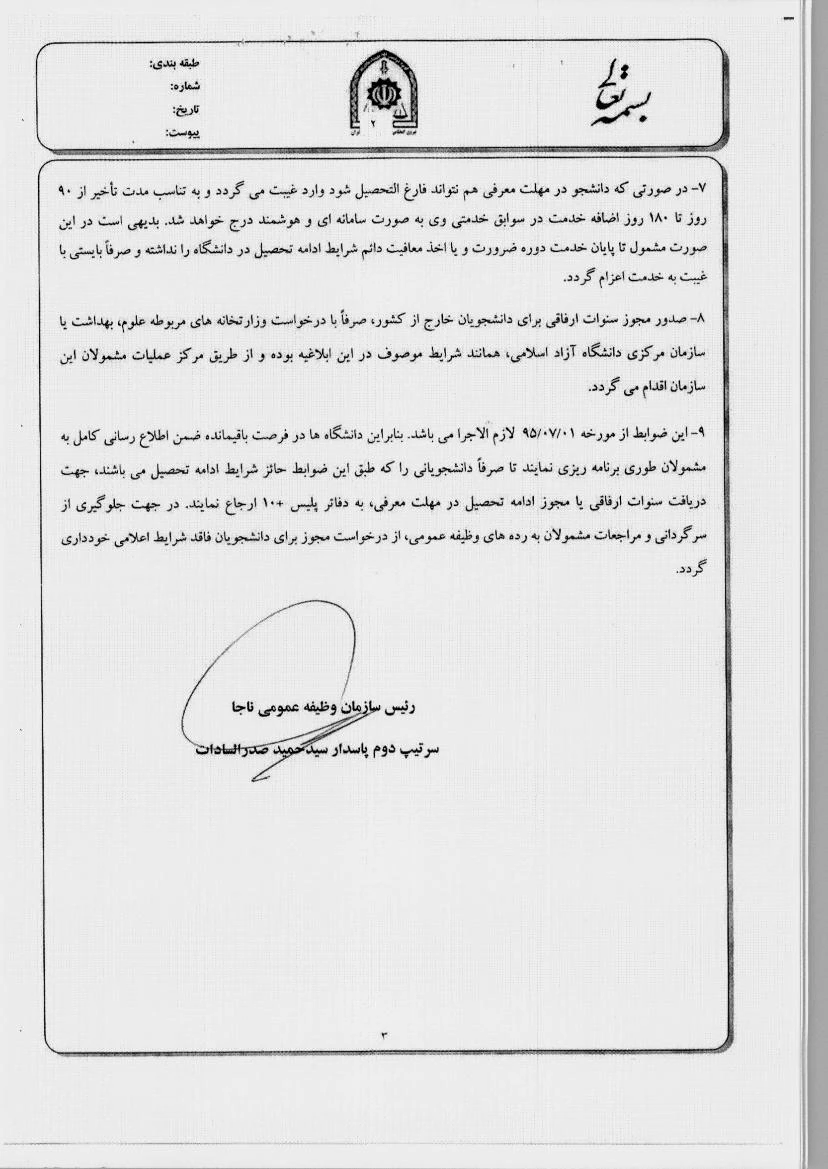 بسمه تعالی
طبقه بندی:
شماره:
تاریخ:
پیوست:
۷- در صورتی که دانشجو در مهلت معرفی هم نتواند فارغ التحصیل شود وارد غیبت می گردد و به تناسب مدت تأخیر از ۹۰
روز تا ۱۸۰ روز اضافه خدمت در سوابق خدمتی وی به صورت سامانه ای و هوشمند درج خواهد شد. بدیهی است در این
صورت مشمول تا پایان خدمت دوره ضرورت و یا اخذ معافیت دائم شرایط ادامه تحصیل در دانشگاه را نداشته و صرفاً بایستی با
غیبت به خدمت اعزام گردد.
۸- صدور مجوز سنوات ارفاقی برای دانشجویان خارج از کشور، صرفاً با درخواست وزارتخانه های مربوطه علوم، بهداشت یا
سازمان مرکزی دانشگاه آزاد اسلامی، همانند شرایط موصوف در این ابلاغیه بوده و از طریق مرکز عملیات مشمولان این
سازمان اقدام می گردد.
۹- این ضوابط از مورخه ۹۵/۰۷/۰۱ لازم الاجرا می باشد. بنابراین دانشگاه ها در فرصت باقیمانده ضمن اطلاع رسانی کامل به
مشمولان طوری برنامه ریزی نمایند تا صرفاً دانشجویانی را که طبق این ضوابط حائز شرایط ادامه تحصیل می باشند، جهت
دریافت سنوات ارفاقی یا مجوز ادامه تحصیل در مهلت معرفی، به دفاتر پلیس +۱۰ ارجاع نمایند. در جهت جلوگیری از
سرگردانی و مراجعات مشمولان به رده های وظیفه عمومی، از درخواست مجوز برای دانشجویان فاقد شرایط اعلامی خودداری
گردد.
رئیس سازمان وظیفه عمومی ناجا
سرتیپ دوم پاسدار سیدحمید صدرالسادات
۳